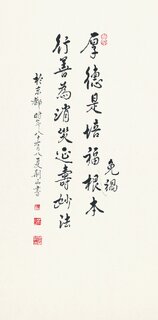 厚德是培福根本
免禍
行善為消災延壽妙法
於京都時年八十有